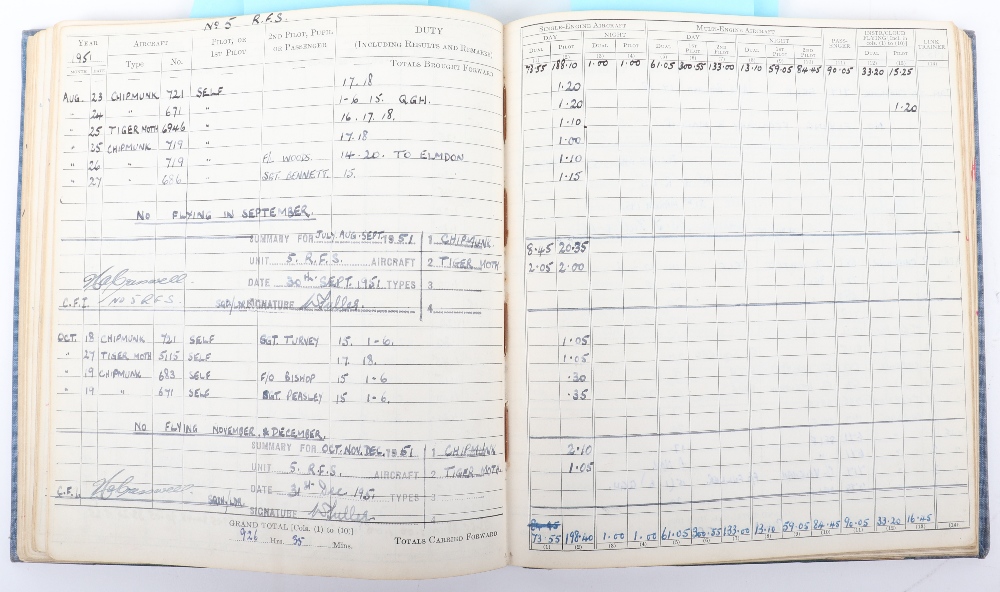 No 5 R.F.S.
YEAR 1951 AIRCRAFT PILOT, OR 1ST PILOT 2ND PILOT, PUPIL OR PASSENGER DUTY (INCLUDING RESULTS AND REMARKS)
MONTH DATE Type No.
TOTALS BROUGHT FORWARD
AUG. 23 CHIPMUNK 721 SELF 17.18
" 24 " 671 " 1-6 15. QGH.
" 25 TIGER MOTH 6946 " 16.17.18.
" 25 CHIPMUNK 719 " 17.18
" 26 " 719 " P/L WOODS. 14.20. TO ELMDON
" 27 " 686 " SGT. BENNETT. 15.
NO FLYING IN SEPTEMBER.
SUMMARY FOR JULY. AUG. SEPT. 1951 1 CHIPMUNK
UNIT 5. R.F.S. AIRCRAFT 2 TIGER MOTH
DATE 30th SEPT. 1951 TYPES 3
C.F.I. No 5 R.F.S. SIGNATURE 4
OCT. 18 CHIPMUNK 721 SELF SGT. TURVEY 15. 1-6.
" 27 TIGER MOTH 5115 SELF 17. 18.
" 19 CHIPMUNK 683 SELF F/O BISHOP 15 1-6
" 19 " 671 SELF SGT. PEASLEY 15 1-6.
NO FLYING NOVEMBER, & DECEMBER.
SUMMARY FOR OCT. NOV. DEC. 1951 1 CHIPMUNK
UNIT 5. R.F.S. AIRCRAFT 2 TIGER MOTH
DATE 31st Dec. 1951 TYPES 3
C.F.I. SIGNATURE
GRAND TOTAL [Cols. (1) to (10)] TOTALS CARRIED FORWARD
926 Hrs. 35 Mins.
SINGLE-ENGINE AIRCRAFT MULTI-ENGINE AIRCRAFT PASSENGER INSTRUMENT FLYING LINK TRAINER
DAY NIGHT DAY NIGHT
DUAL PILOT DUAL PILOT DUAL 1ST PILOT 2ND PILOT DUAL 1ST PILOT 2ND PILOT DUAL PILOT
73.55 188.10 1.00 1.00 61.05 300.55 133.00 13.10 59.05 84.45 90.05 33.20 15.25
1.20
1.20 1.20
1.10
1.00
1.10
1.15
8.45 20.35
2.05 2.00
1.05
1.05
.30
.35
2.10
1.05
73.55 198.40 1.00 1.00 61.05 300.55 133.00 13.10 59.05 84.45 90.05 33.20 16.45